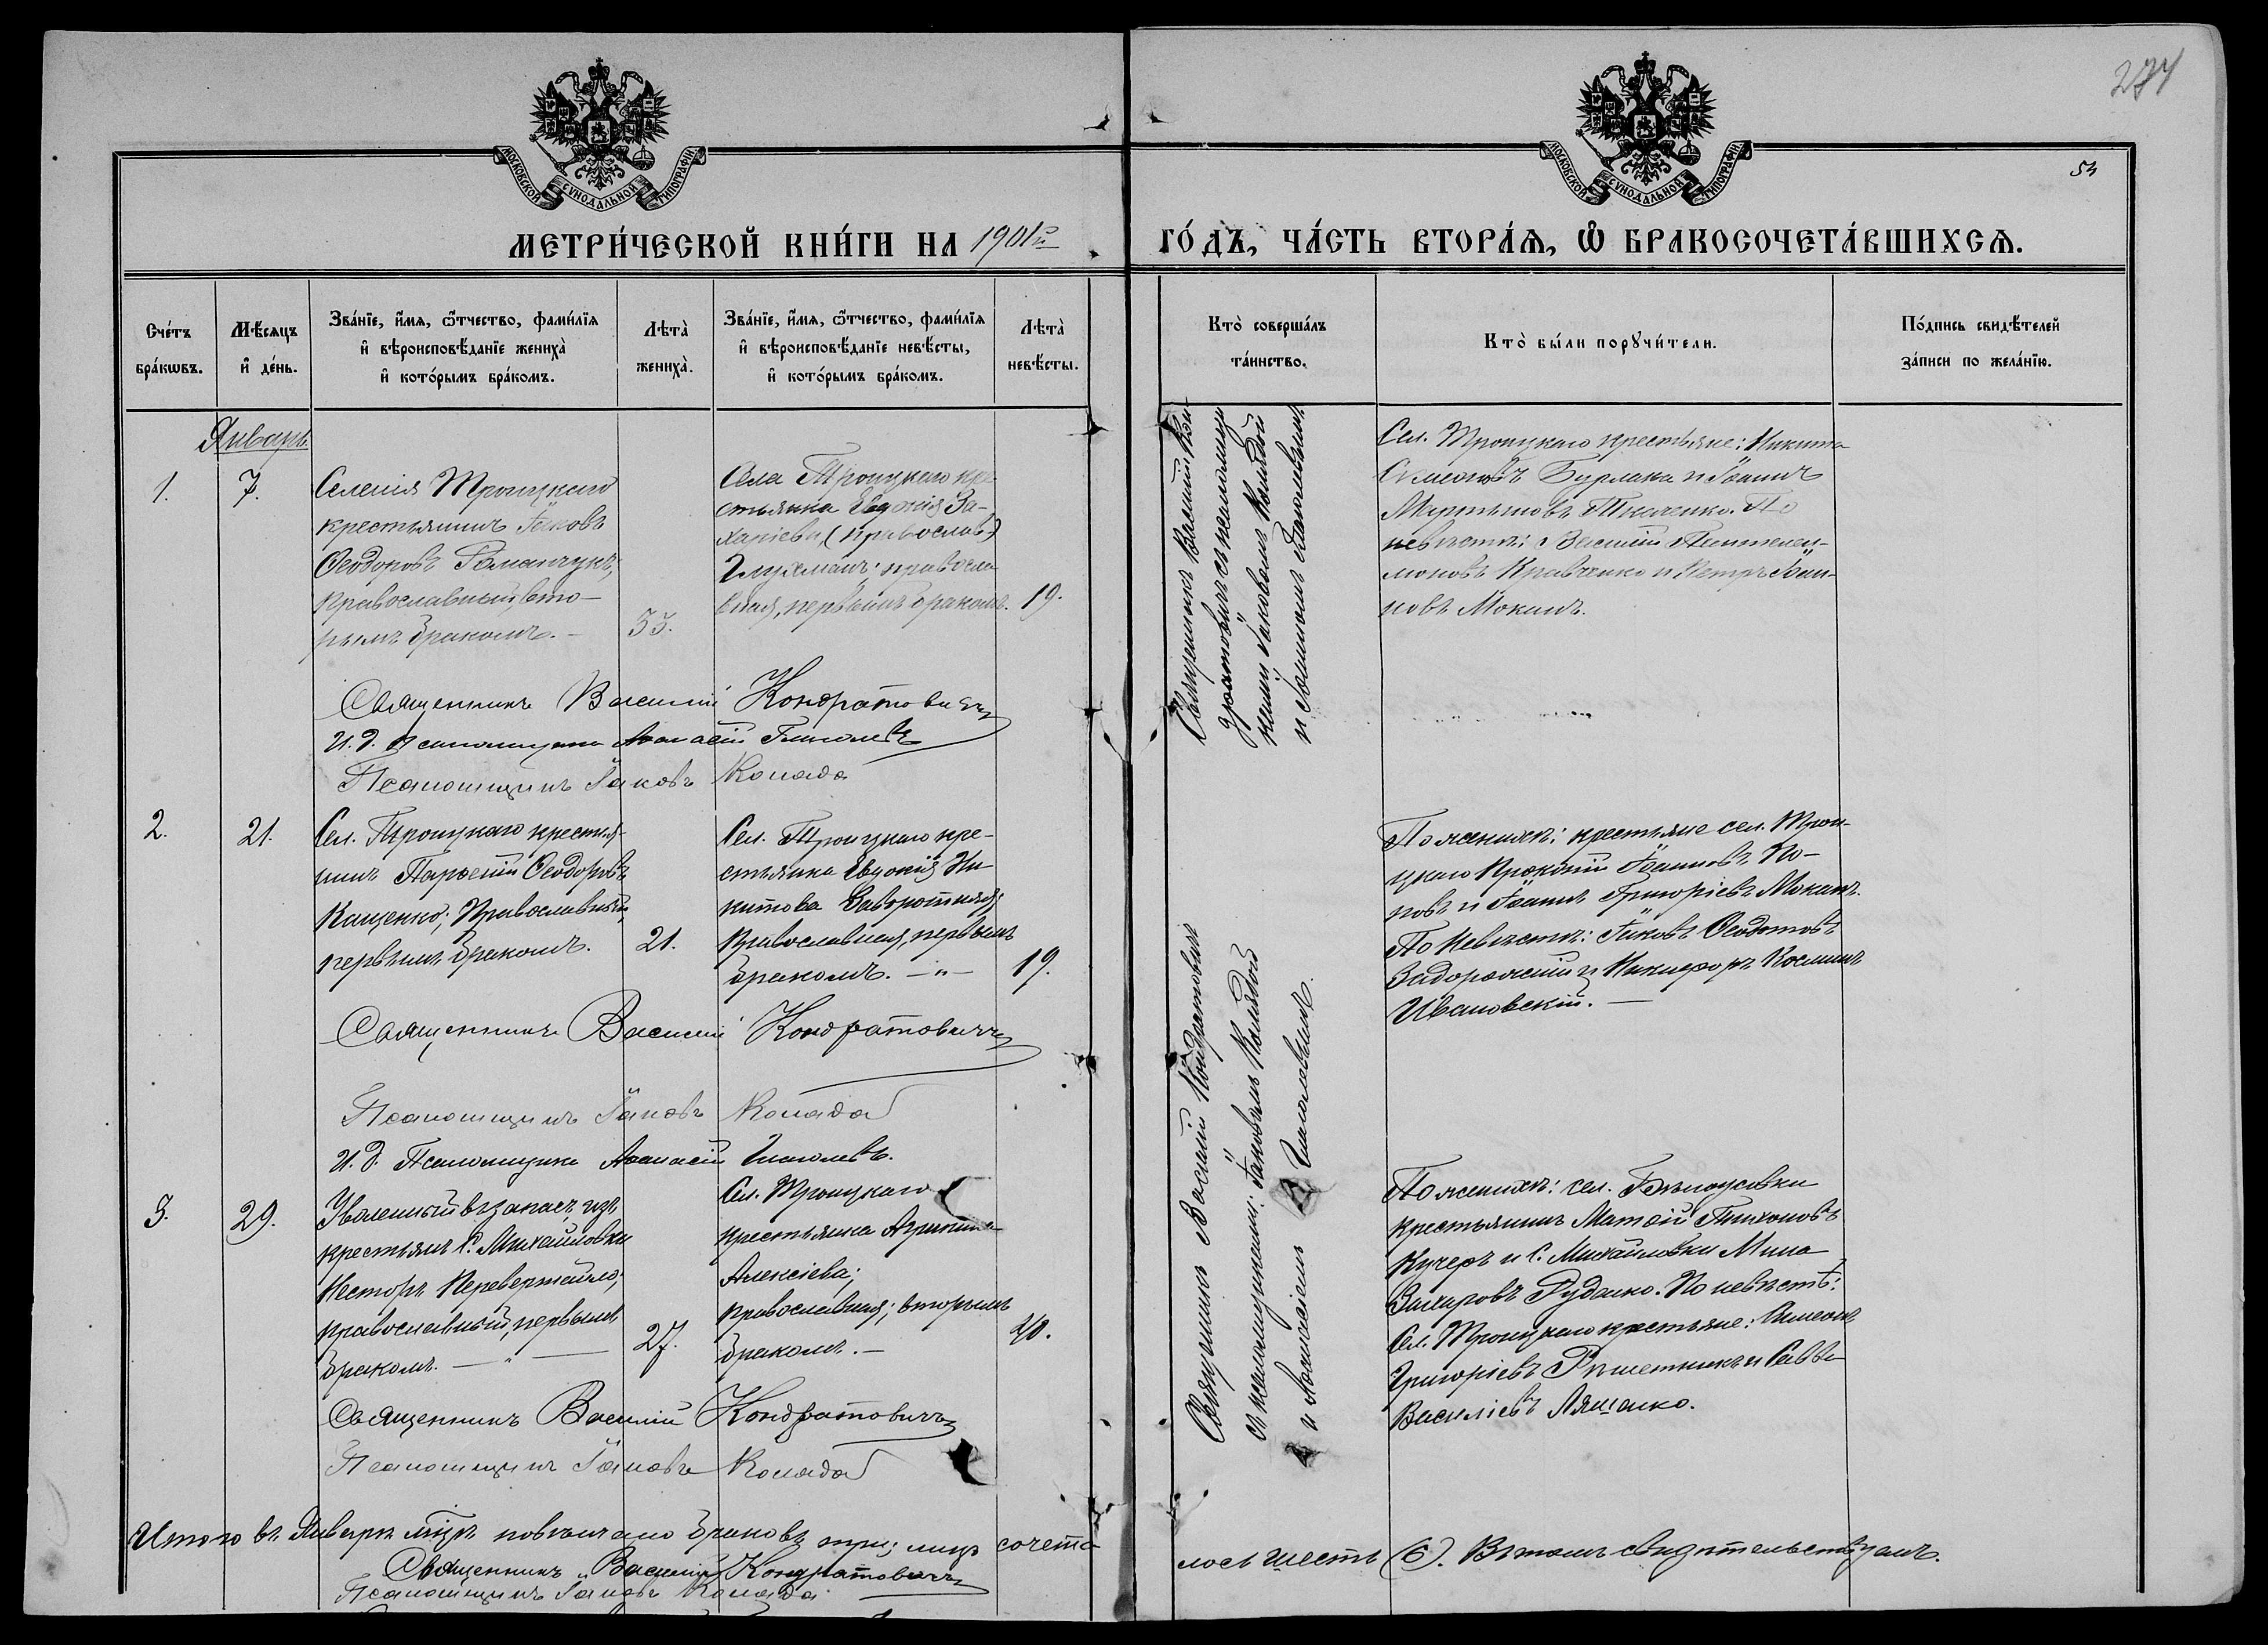 274
54
МОСКОВСКОЙ СУНОДАЛЬНОЙ ТИПОГРАФІИ.
МОСКОВСКОЙ СУНОДАЛЬНОЙ ТИПОГРАФІИ.
МЕТРИ́ЧЕСКОЙ КНИ́ГИ НА 1901й ГО́ДЪ, ЧА́СТЬ ВТОРА́Я, Ѡ҆ БРАКОСОЧЕТА́ВШИХСЯ.
Сче́тъ
бра́кѡвъ.
Мѣ́сяцъ
и҆ де́нь.
Зва́нїе, и҆́мя, ѻ҆́тчество, фами́лїя
и҆ вѣроисповѣ́данїе жениха̀
и҆ кото́рымъ бра́комъ.
Лѣта̀
жениха̀.
Зва́нїе, и҆́мя, ѻ҆́тчество, фами́лїя
и҆ вѣроисповѣ́данїе невѣ́сты,
и҆ кото́рымъ бра́комъ.
Лѣта̀
невѣ́сты.
Кто̀ соверша́лъ
та́инство.
Кто̀ бы́ли порꙋчи́тели.
По́дпись свидѣ́телей
за́писи по жела́нїю.
Январь.
1.
7.
Селенія Троицкаго
крестьянинъ Іаковъ
Ѳеодоровъ Романчукъ,
православный, вто-
рымъ бракомъ. -
55.
Села Троицкаго кре-
стьянка Евдокія За-
харіева, (православ.)
Глухманъ; правосла
вная, первымъ бракомъ.
19.
Священникъ Василій Кон-
дратовичъ съ псаломщи
ками Іаковомъ Колядой
и Аѳанасіемъ Гмолевымъ
Сел. Троицкаго крестьяне: Никита
Симеоновъ Бурлака и Іоаннъ
Мартыновъ Ткаченко. По
невѣстѣ: Василій Пантелеи-
моновъ Кравченко и Петръ Іоан-
новъ Моканъ.
Священникъ Василій Кондратовичъ
И. д. псаломщика Аѳанасій
Псаломщикъ Іаковъ Коляда
2.
21.
Сел. Троицкаго крестья-
нинъ Парѳеній Ѳеодоровъ
Кащенко; православный,
первымъ бракомъ.
21.
Сел. Троицкаго кре-
стьянка Евдокія Ни-
китова Заворотная;
православная, первымъ
бракомъ. -"-
19.
Священникъ Василій Кондратовичъ
съ псаломщиками: Іаковомъ Колядой
и Аѳанасіемъ
По женихѣ: крестьяне сел. Трои-
цкаго Прокопій Іоанновъ По-
повъ и Іоаннъ Григоріевъ Моканъ.
По невѣстѣ: Іаковъ Ѳеодотовъ
Задорожній и Никифоръ Косминъ
Ивановскій. —
Священникъ Василій Кондратовичъ
Псаломщикъ Іаковъ Коляда
И. д. Псаломщика Аѳанасій
3.
29.
Уволенный въ запасъ, изъ
крестьянъ с. Михайловки
Несторъ Перевертайло;
православный, первымъ
бракомъ. —"—
27.
Сел. Троицкаго
крестьянка Агрипина
Алексіева;
православная; вторымъ
бракомъ. -
По женихѣ: сел. Бѣлоусовки
крестьянинъ Матѳій Тихоновъ
Кучеръ и с. Михайловки Мина
Захаровъ Руденко. По невѣстѣ:
Сел. Троицкаго крестьяне: Симеонъ
Григоріевъ Рѣшетникъ и Савва
Василіевъ Ляшенко.
Священникъ Василій Кондратовичъ
Псаломщикъ Іаковъ Коляда
Итого въ Январѣ мѣсяцѣ повѣнчано браковъ три; лицъ сочета-
лось шесть (6). Въ томъ свидѣтельствуемъ.
Священникъ Василій Кондратовичъ
Псаломщикъ Іаковъ Коляда